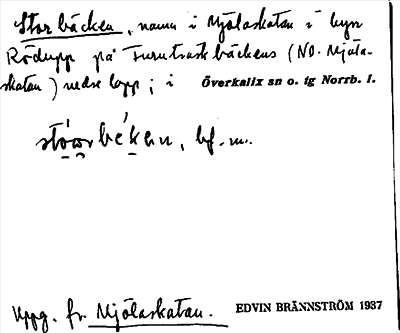 Storbäcken, namn i Mjölaskatan i byn
Rödupp på Furuträskbäckens (NO. Mjöla-
skatan) nedre lopp; i Överkalix sn o. tg Norrb. l.
bf. m.
Uppg. fr. Mjölaskatan. EDVIN BRÄNNSTRÖM 1937